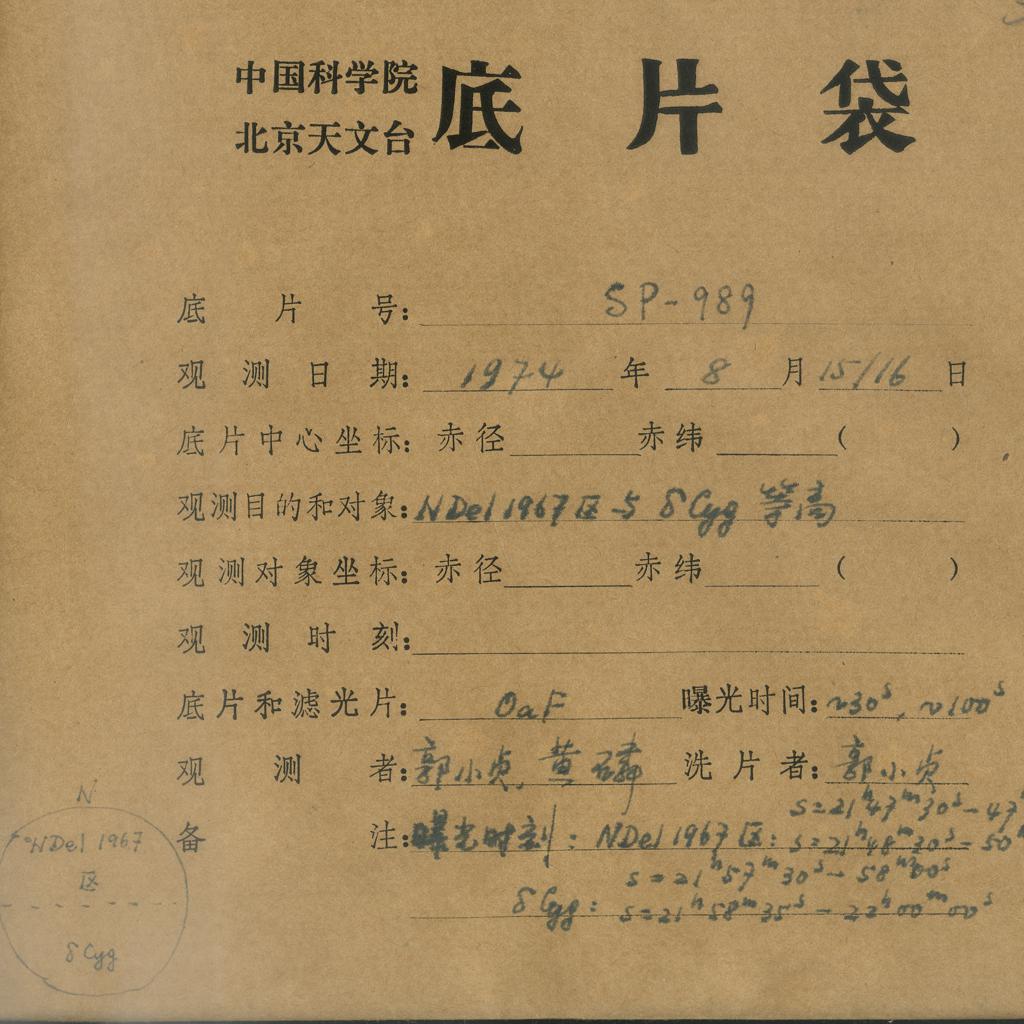 中国科学院
北京天文台
底片袋
底片号: SP-989
观测日期: 1974年 8月 15/16日
底片中心坐标: 赤径 赤纬 ( )
观测目的和对象: NDel 1967区与 δCyg 等高
观测对象坐标: 赤径 赤纬 ( )
观测时刻:
底片和滤光片: OaF 曝光时间: ~30s, ~100s
观测者: 郭小贞, 黄磷 洗片者: 郭小贞
s=21h47m30s-47h
备注: 曝光时刻: NDel 1967区: s=21h48m30s-50m
s=21h57m30s-58m00s
δCyg: s=21h58m35s-22h00m00s
N
NDel 1967
区
δCyg